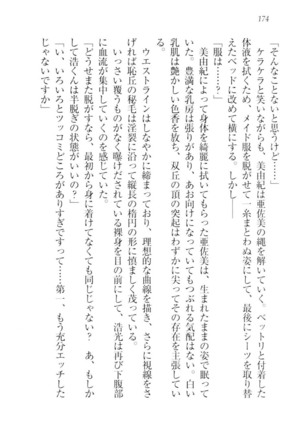 174
「そんなことないと思うけど……」
ケラケラと笑いながらも、美由紀は亜佐美の縄を解いていく。ベットリと付着した
体液を拭くため、メイド服を脱がせて一糸まとわぬ姿にして、最後にシーツを取り替
えたベッドに改めて横にする。しかし――
「服は……？」
美由紀によって身体を綺麗に拭いてもらった亜佐美は、生まれたままの姿で眠って
いた。豊満な乳房は張りがあり、あお向けになっていてもつぶれる気配はない。白い
乳肌は艶かしい色香を放ち、双丘の頂の突起はわずかに尖ってその存在を主張してい
る。
ウエストラインはしなやかに締まっており、理想的な曲線を描き、さらに視線をさ
げれば恥丘の秘毛は淫裂に沿って縦長の楕円の形に慎ましく茂っていた。
いっさい覆うものがなく曝けだされている裸身を目の前にして、浩光は再び下腹部
に血流が集中していくのを感じていた。
「どうせまた脱がすなら、最初から身に着けてなくても同じじゃない？　あ、もしか
して浩くんは半脱ぎの状態がいいの？」
「い、いろいろとツッコミどころがありすぎですって――第一、もう充分エッチした
じゃないですか」